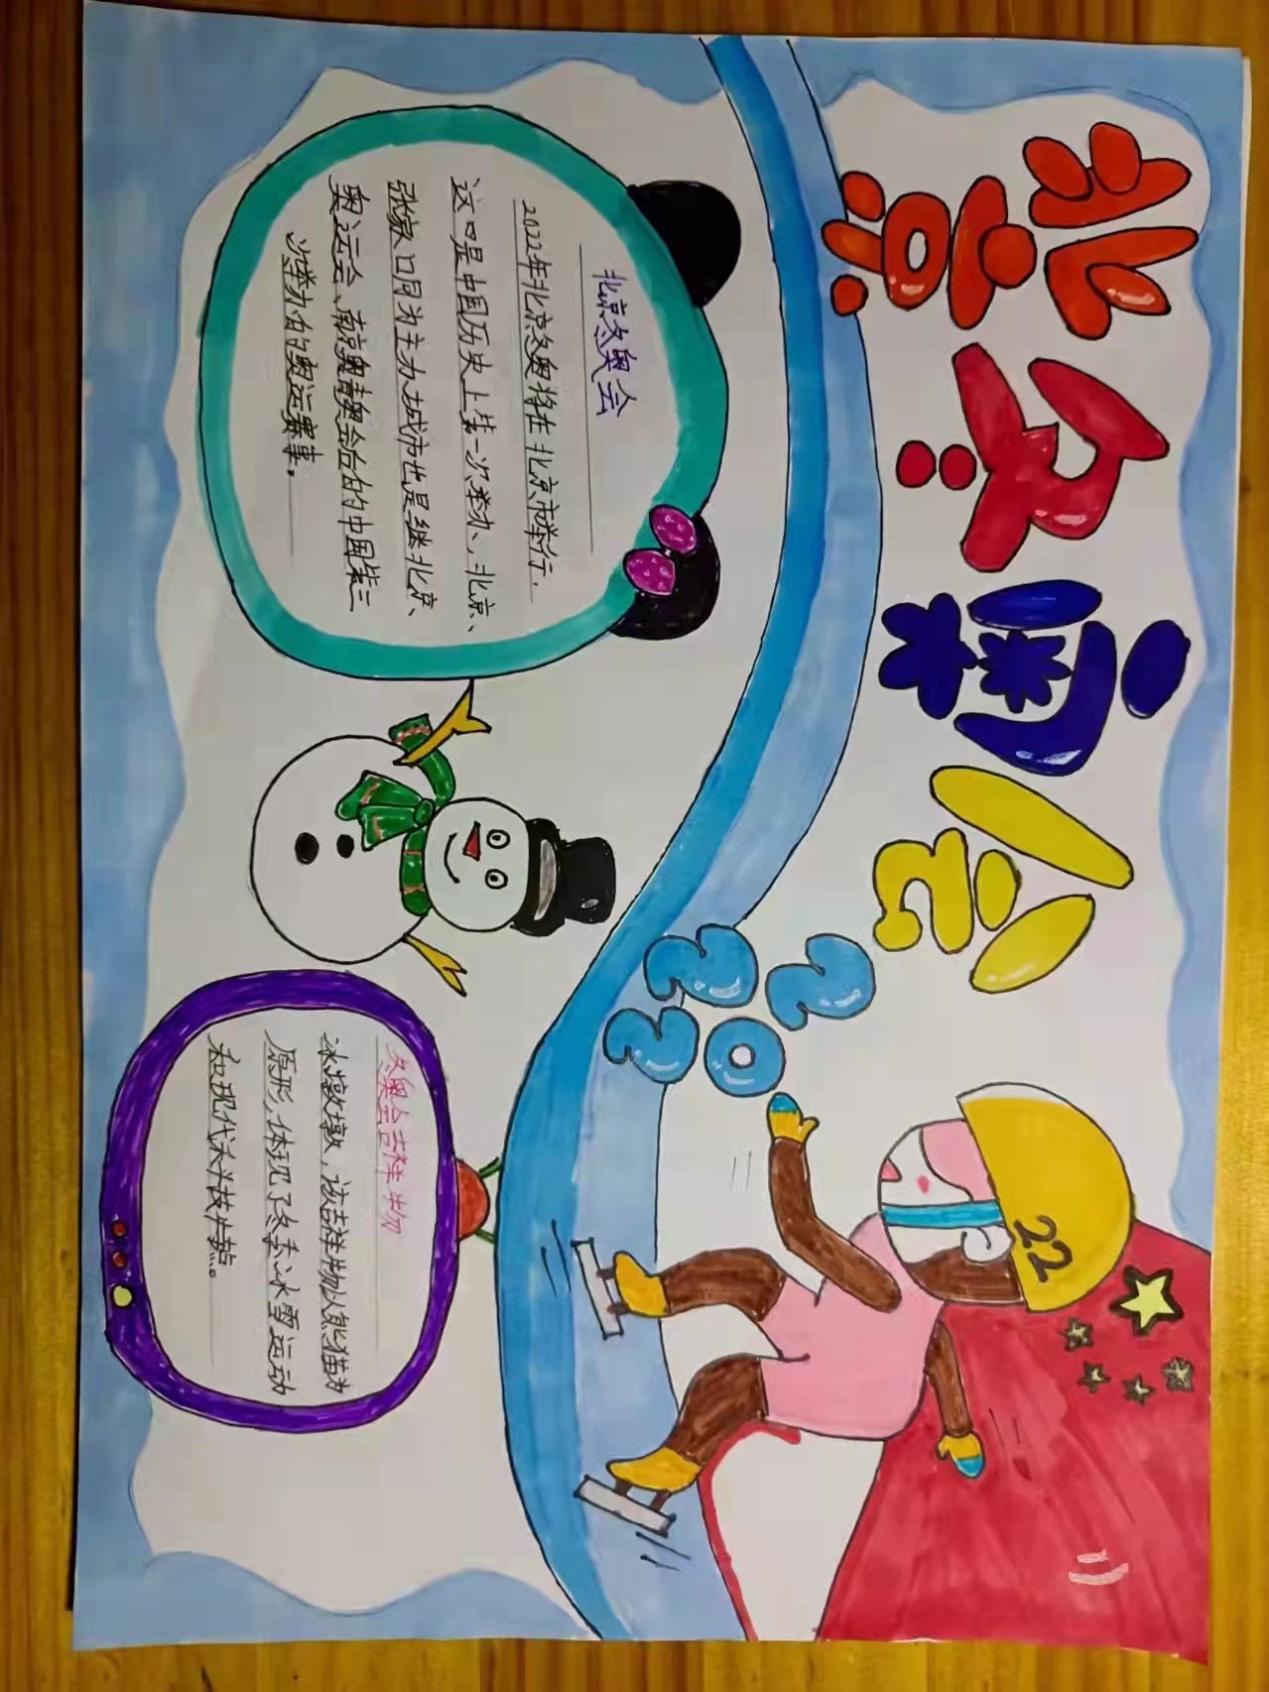 北京冬奥会
2022
22
北京冬奥会
2022年北京冬奥将在北京市举行.
这只是中国历史上第一次举办,北京、
张家口同为主办城市也是继北京、
奥运会、南京奥青奥会后的中国第三
次举办的奥运赛事.
冬奥会吉祥物
冰墩墩,该吉祥物以熊猫为
原形,体现了冬季冰雪运动
和现代科技特点。